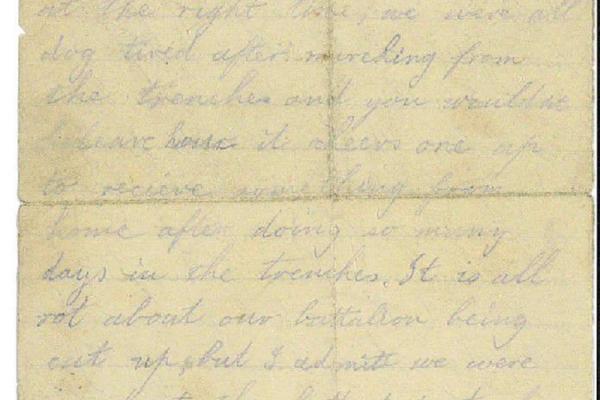 at the right time, we were all
dog tired after marching from
the trenches and you wouldnt
beleave how it cheers one up
to recieve something from
home after doing so many
days in the trenches. It is all
rot about our battalion being
cut up, but I admit we were